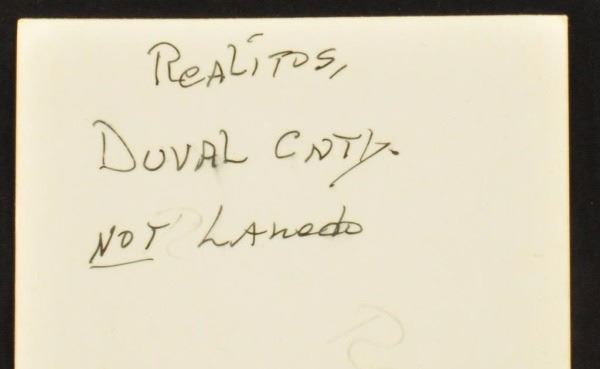 Realitos,
Duval Cnty.
Not Laredo